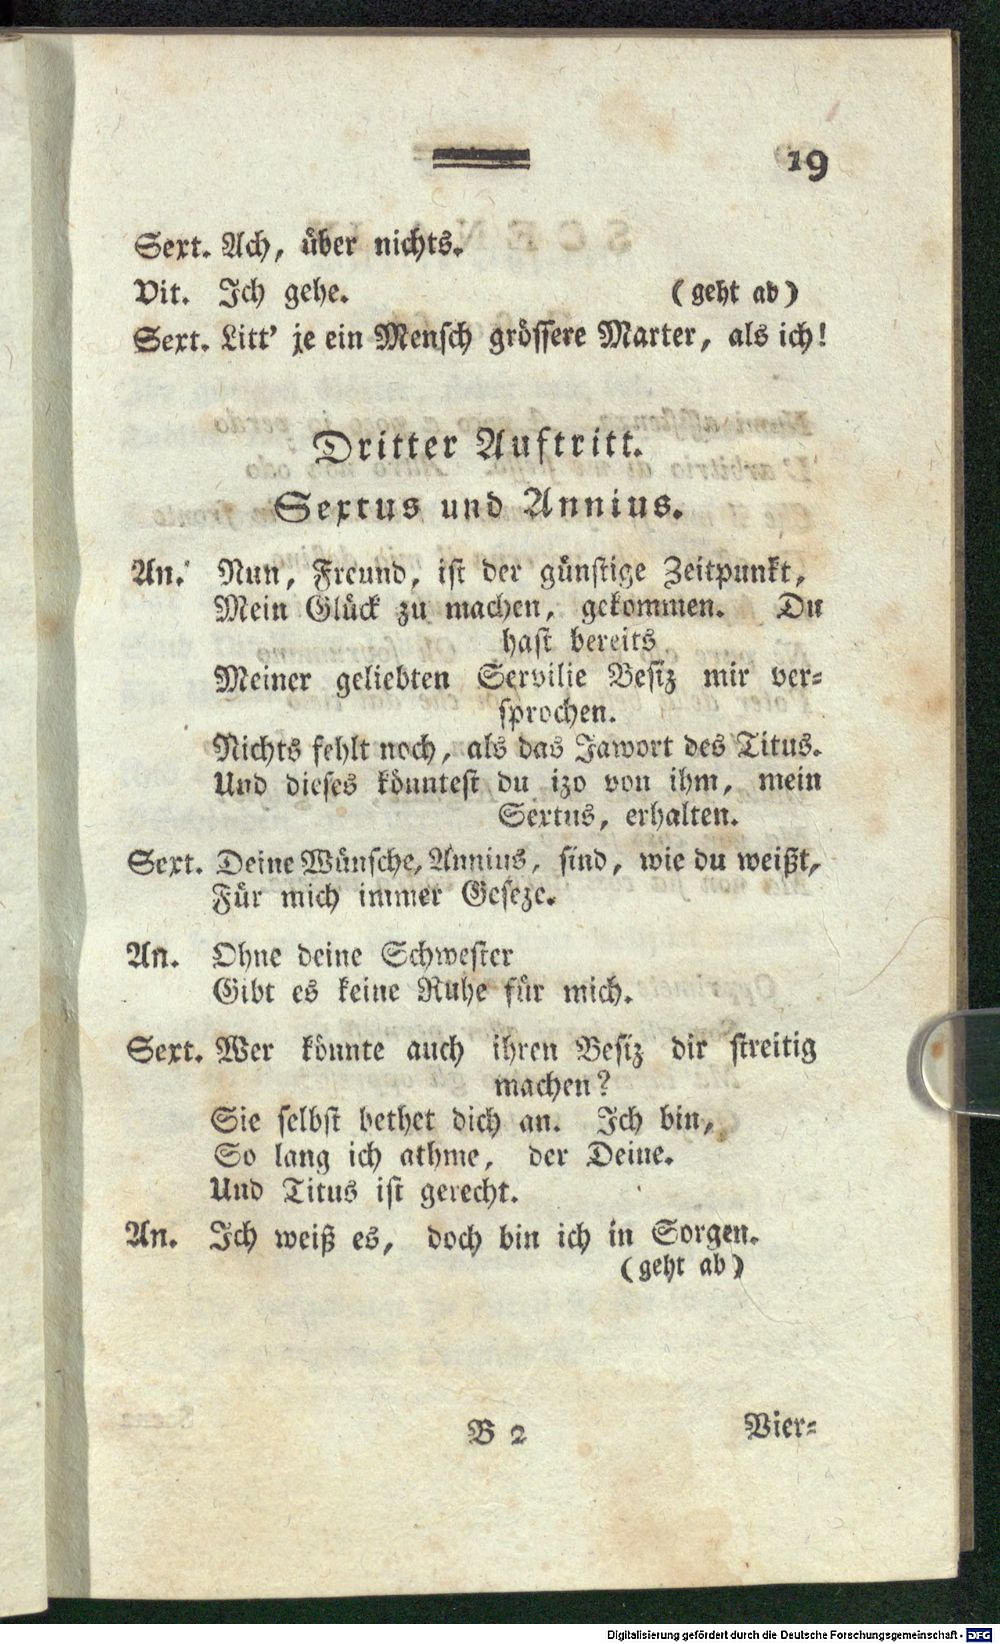 19
Sext. Ach, über nichts.
Vit. Ich gehe. (geht ab)
Sext. Litt' je ein Mensch grössere Marter, als ich!
Dritter Auftritt.
Sextus und Annius.
An. Nun, Freund, ist der günstige Zeitpunkt,
Mein Glück zu machen, gekommen. Du
hast bereits
Meiner geliebten Servilie Besiz mir ver-
sprochen.
Nichts fehlt noch, als das Jawort des Titus.
Und dieses könntest du izo von ihm, mein
Sextus, erhalten.
Sext. Deine Wünsche, Annius, sind, wie du weißt,
Für mich immer Geseze.
An. Ohne deine Schwester
Gibt es keine Ruhe für mich.
Sext. Wer könnte auch ihren Besiz dir streitig
machen?
Sie selbst bethet dich an. Ich bin,
So lang ich athme, der Deine.
Und Titus ist gerecht.
An. Ich weiß es, doch bin ich in Sorgen.
(geht ab)
B 2 Vier-
Digitalisierung gefördert durch die Deutsche Forschungsgemeinschaft - DFG